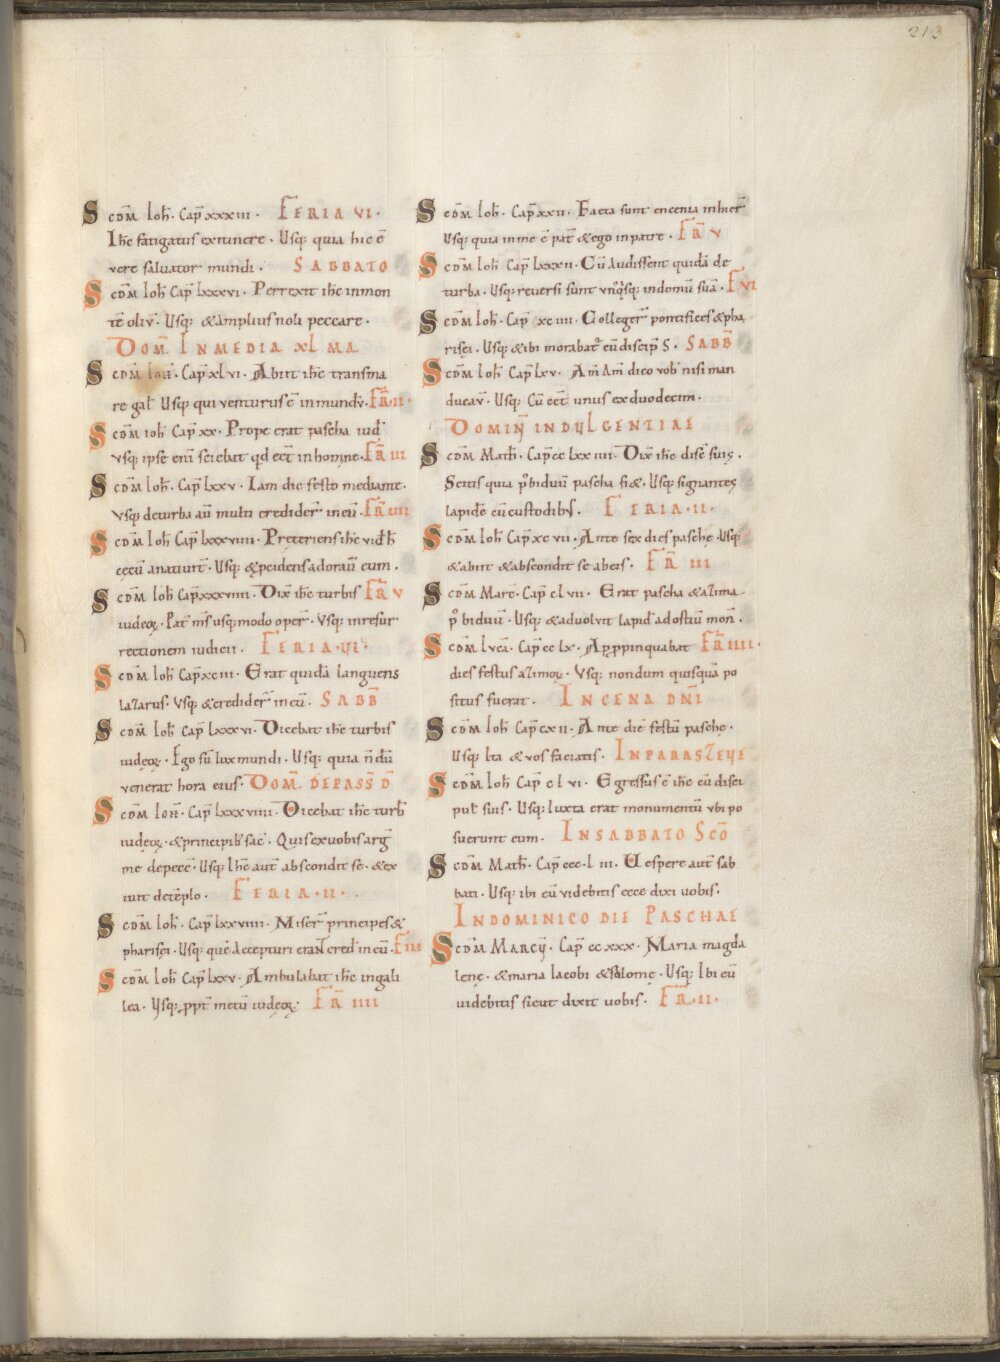 213
Scdm Ioh̄. Cap̄ xxxiii. FERIA VI.
Ihc̄ fatigatus ex itinere. Usq; quia hic ē
vere saluator mundi. SABBATO
Scdm Ioh̄ Cap̄ lxxxvi. Perrexit ihc̄ in mon
tē oliv̄. Usq; & amplius noli peccare.
DOM̄ IN MEDIA XLMA
Scdm Ioh̄. Cap̄ xlvi. Abiit ihc̄ trans ma
re gal̄ Usq; qui venturus ē in mundv̄. FR̄ II.
Scdm ioh̄ Cap̄ xx. Prope erat pascha iud̄
vsq; ipse eni sciebat qd eēt in homine. FR̄ III
Scdm Ioh̄. Cap̄ lxxv. Iam die festo mediante.
Vsq; de turba aū multi credider̄ in eū. FR̄ IIII
Scdm Ioh̄ Cap̄ lxxxviiii. Preteriens ihc̄ vid̄ h
cecū a nativit̄. Usq; & pcidens adorauit̄ eum.
Scdm Ioh̄ Cap̄ xxxviiii. Dix̄ ihc̄ turbis FR̄ V
iudeoꝝ. Pat̄ ms̄ usq; modo oper̄. Vsq; in resur
rectionem iudicii. FERIA. VI.
Scdm Ioh̄ Cap̄ xciii. Erat quidā languens
lazarus. Vsq; & credider̄ in eū. SABB̄
Scdm Ioh̄ Cap̄ lxxxvi. Dicebat ihc̄ turbis
iudeoꝝ. Ego sū lux mundi. Usq; quia n̄dū
venerat hora eius. DOM̄ DE PASS̄ D̄
Scdm Ioh̄. Cap̄ lxxxviiii. Dicebat ihc̄ turb̄
iudeoꝝ. & principib; sac̄. Quis ex uobis arḡ
me de pecc̄. Usq; Ihc̄ aut̄ abscondit se. & ex
iuit de tēplo. FERIA. II.
Scdm Ioh̄. Cap̄ lxxviiii. Miser̄ principes &
pharisei. Usq; quē accepturi eran̄t cred̄ in eū. F III
Scdm Ioh̄ Cap̄ lxxv. Ambulabat ihc̄ in gali
lea. Vsq; ppt̄ metū iudeoꝝ. FR̄ IIII
Scdm Ioh̄. Cap̄ xxii. Facta sunt encenia in hier̄
Usq; quia in me ē pat̄ & ego in patre. FR̄ V
Scdm Ioh̄ Cap̄ lxxxii. Cū audissent quidā de
turba. Usq; reuersi sunt vnq̄sq; in domū suā. F VI
Scdm Ioh̄. Cap̄ xciiii. Colleger̄ pontifices & pha
risei. Usq; & ibi morabat̄ cū discip̄ S. SABB̄
Scdm Ioh̄ Cap̄ lxv. Am̄ Am̄ dico vob̄ nisi man
ducav̄. Usq; Cū eēt unus ex duodecim.
DOMIN̄ INDULGENTIAE
Scdm Math̄. Cap̄ cclxxiiii. Dix̄ ihc̄ disc̄ suis.
Scitis quia p̄ biduū pascha fi&. Usq; signantes
lapidē cū custodib;. FERIA. II.
Scdm Ioh̄ Cap̄ xcvii. Ante sex dies pasche. Usq;
& abiit & abscondit se ab eis. FR̄ III
Scdm Marc̄. Cap̄ clvii. Erat pascha & azima
p̄ biduū. Usq; & aduoluit lapid̄ ad ostiū mon̄.
Scdm Lvcā. Cap̄ cclx. Appinquabat FR̄ IIII.
dies festus azimoꝝ. Vsq; nondum quisquā po
situs fuerat. IN CENA DN̄I
Scdm Ioh̄ Cap̄ cxii. Ante diē festū pasche.
Usq; Ita & vos faciatis. IN PARASZEVE
Scdm Ioh̄ Cap̄ clvi. Egressus ē ihc̄ cū disci
pul̄ suis. Usq; Iuxta erat monumentū vbi po
suerunt eum. IN SABBATO SC̄O
Scdm Math̄. Cap̄ ccc.liii. Uespere aut̄ sab
bati. Usq; ibi eū videbitis ecce dixi uobis.
IN DOMINICO DIE PASCHAE
Scdm Marcv̄. Cap̄ ccxxx. Maria magda
lene. & maria Iacobi & salome. Usq; Ibi eū
videbitis sicut dixit uobis. FR̄. II.